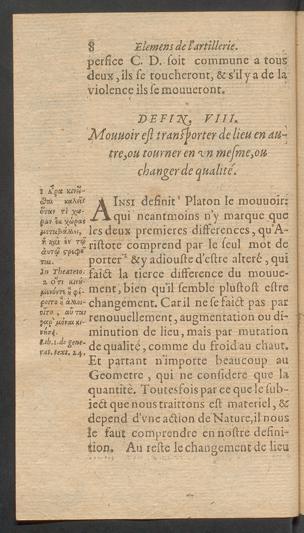 8 Elemens de l'artillerie.
perfice C. D. soit commune a tous
deux, ils se toucheront, & s'il y a de la
violence ils se mouueront.
DEFIN, VIII.
Mouuoir est transporter de lieu en au-
tre, ou tourner en vn mesme, ou
changer de qualité.
AINSI definit Platon le mouuoir:
qui neantmoins n'y marque que
les deux premieres differences, qu'A-
ristote comprend par le seul mot de
porter² & y adiouste d'estre alteré, qui
faict la tierce difference du mouue-
ment, bien qu'il semble plustost estre
changement. Car il ne se faict pas par
renouuellement, augmentation ou di-
minution de lieu, mais par mutation
de qualité, comme du froid au chaut.
Et partant n'importe beaucoup au
Geometre, qui ne considere que la
quantité. Toutesfois par ce que le sub-
iect que nous traittons est materiel, &
depend d'vne action de Nature, il nous
le faut comprendre en nostre defini-
tion. Au reste le changement de lieu
In Theæteto.
8. lib. 1. de gene-
rat. text. 24.